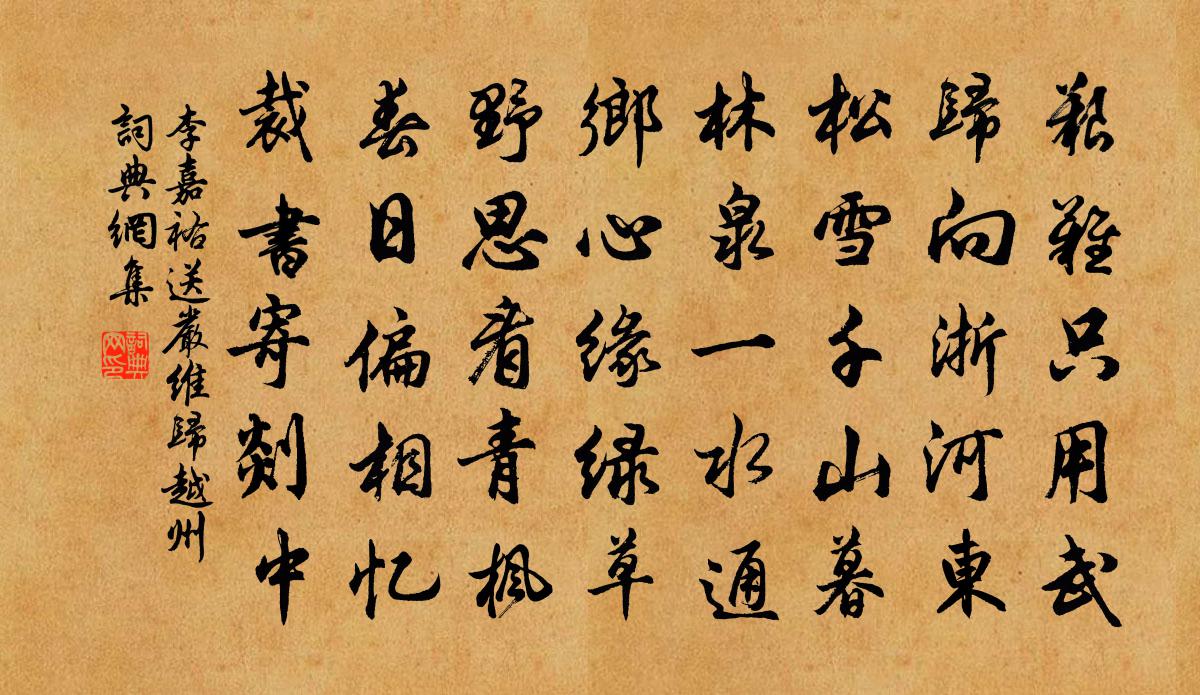 艱難只用武
歸向浙河東
松雪千山暮
林泉一水通
鄉心緣綠草
野思看青楓
春日偏相忆
裁書寄剡中
李嘉祐送嚴維歸越州
詞典網集
詞典网印